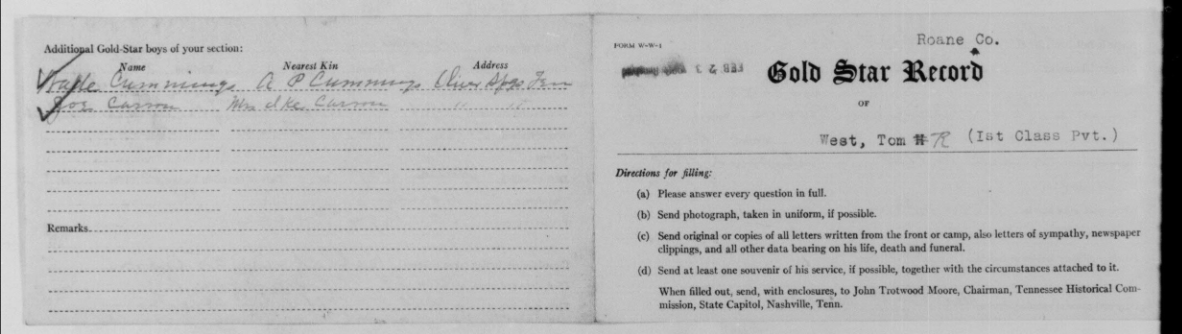 Additional Gold-Star boys of your section:
Name Nearest Kin Address
Cummings A P Cummings Oliver Spgs Tenn
Joe Carson Mrs Ike Carson " "
Remarks
FORM W-W-1
Roane Co.
Gold Star Record
OF
West, Tom R (Ist Class Pvt.)
Directions for filling:
(a) Please answer every question in full.
(b) Send photograph, taken in uniform, if possible.
(c) Send original or copies of all letters written from the front or camp, also letters of sympathy, newspaper
clippings, and all other data bearing on his life, death and funeral.
(d) Send at least one souvenir of his service, if possible, together with the circumstances attached to it.
When filled out, send, with enclosures, to John Trotwood Moore, Chairman, Tennessee Historical Com-
mission, State Capitol, Nashville, Tenn.